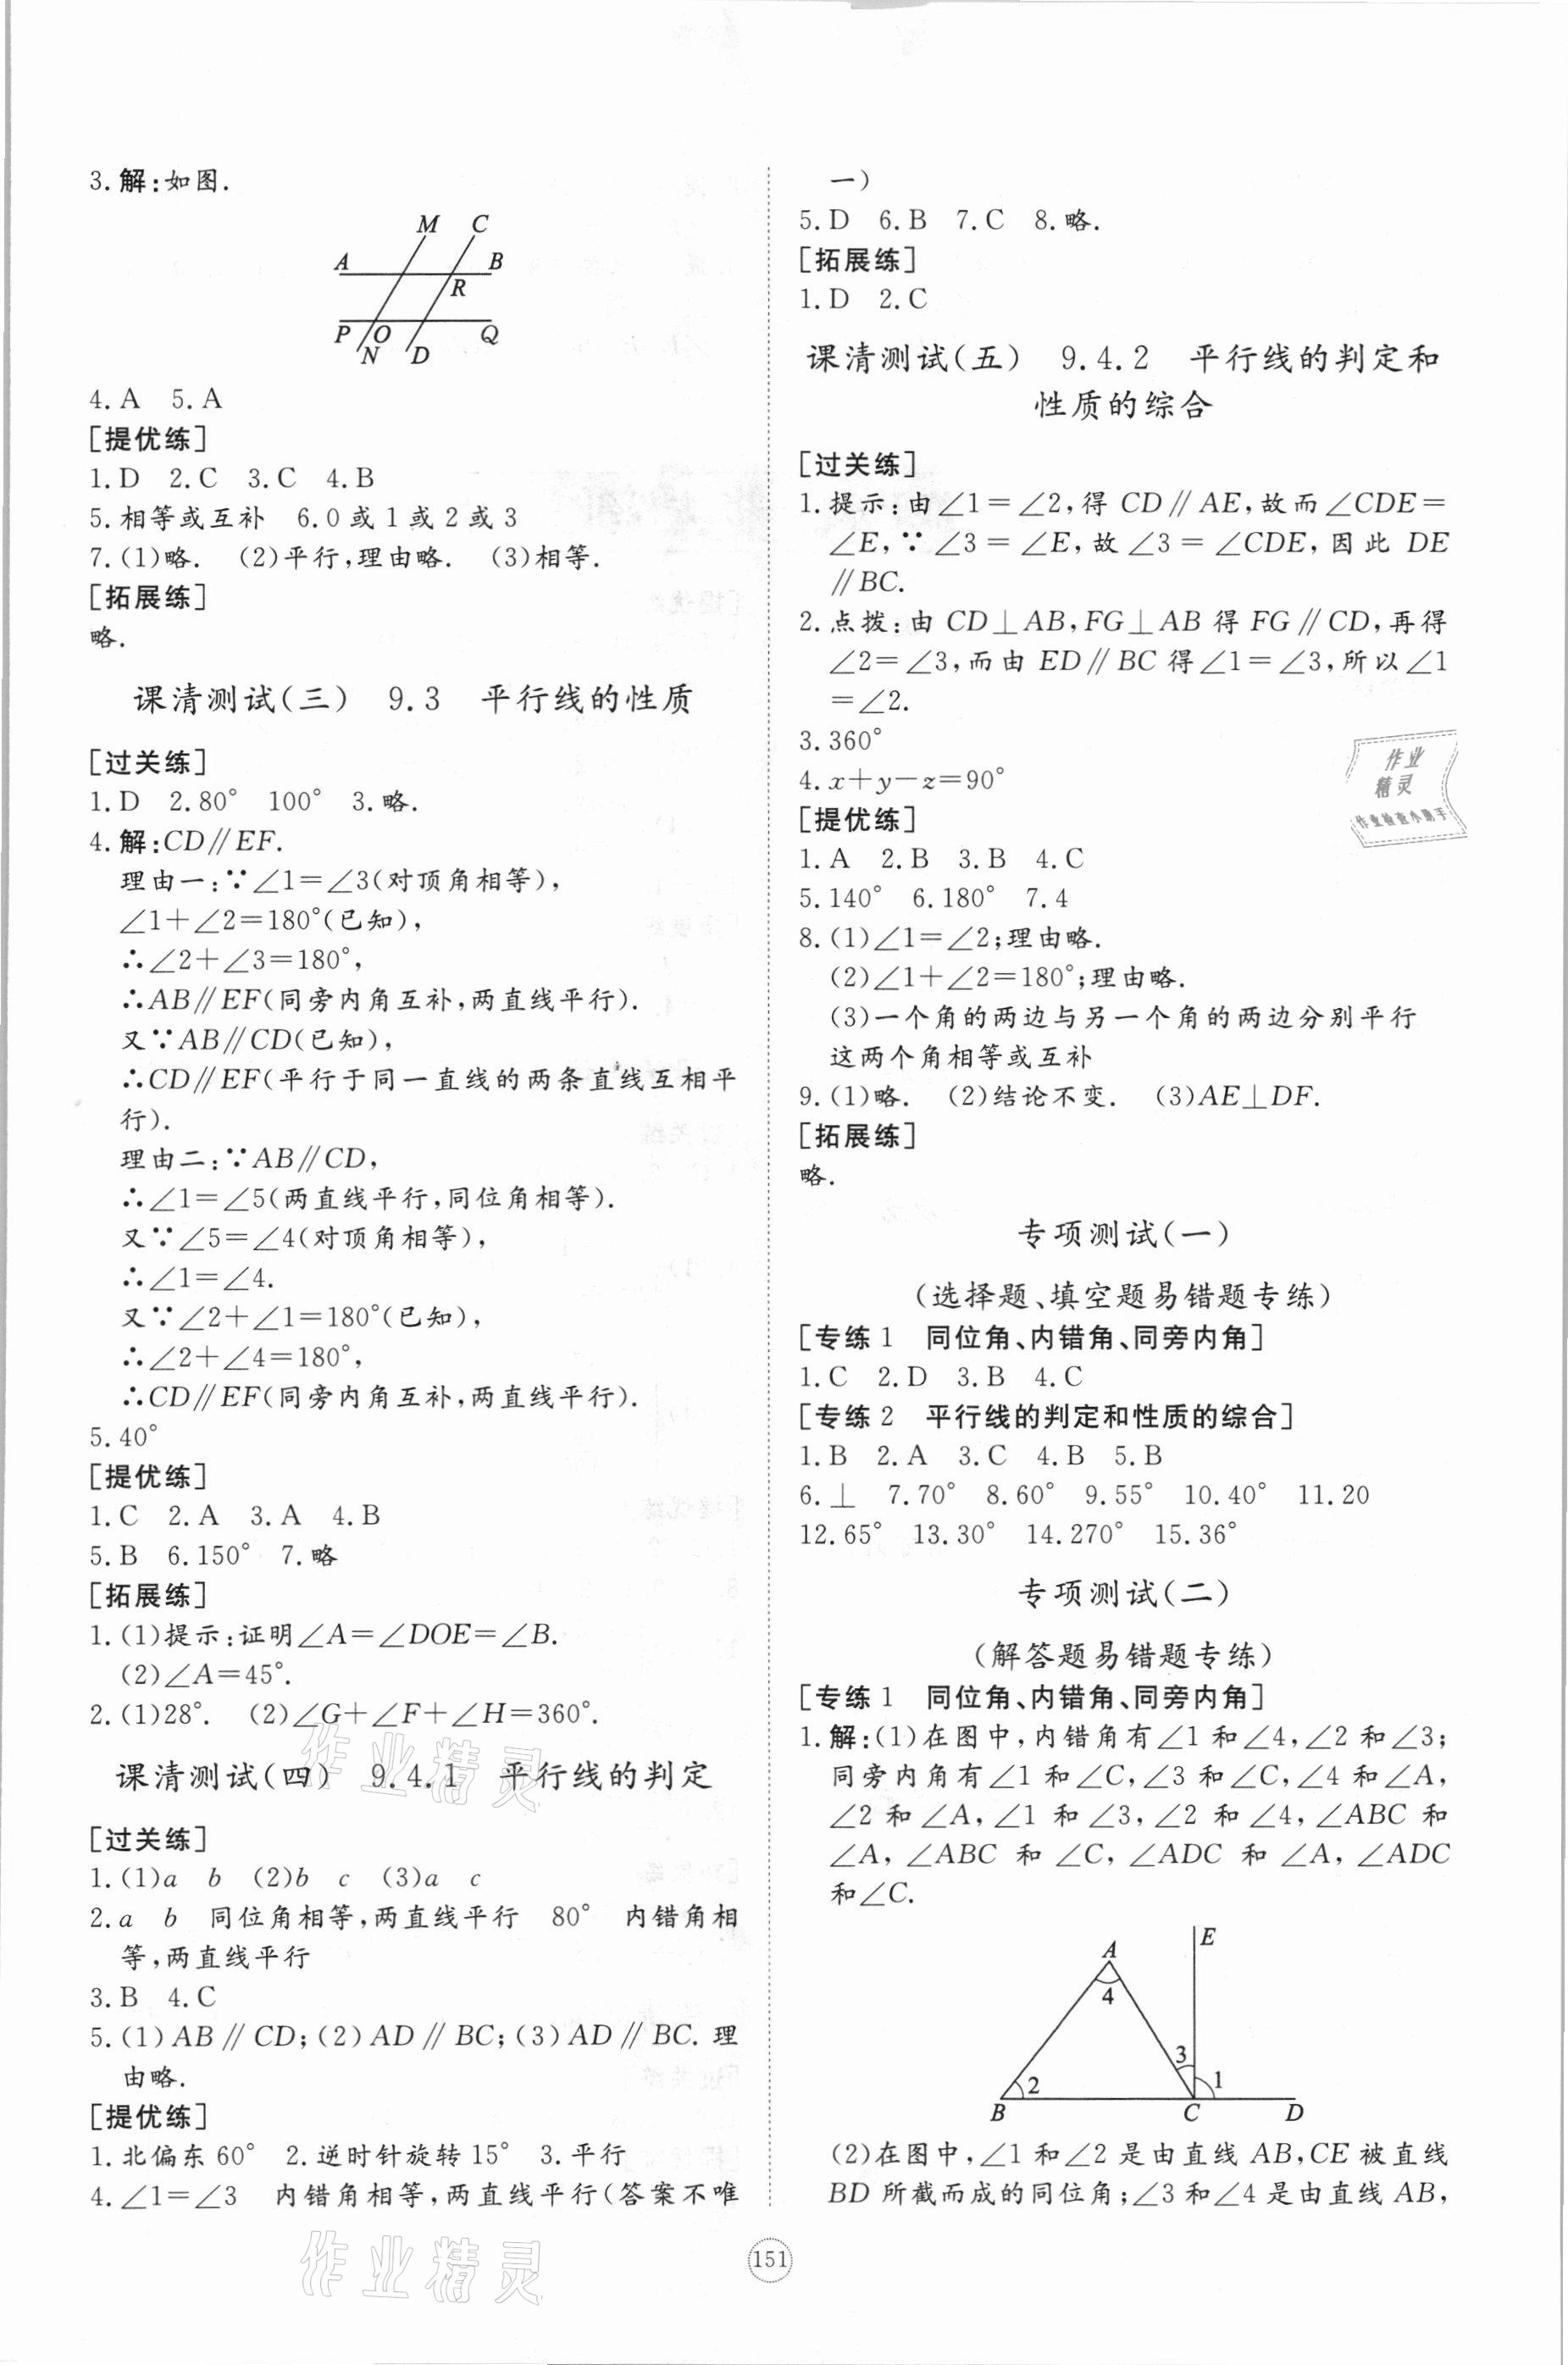 3.解:如图.
M C
A B
R
P O Q
N D
4.A 5.A
[提优练]
1.D 2.C 3.C 4.B
5.相等或互补 6.0或1或2或3
7.(1)略. (2)平行,理由略. (3)相等.
[拓展练]
略.
课清测试(三) 9.3 平行线的性质
[过关练]
1.D 2.80° 100° 3.略.
4.解:CD∥EF.
理由一:∵∠1=∠3(对顶角相等),
∠1+∠2=180°(已知),
∴∠2+∠3=180°,
∴AB∥EF(同旁内角互补,两直线平行).
又∵AB∥CD(已知),
∴CD∥EF(平行于同一直线的两条直线互相平
行).
理由二:∵AB∥CD,
∴∠1=∠5(两直线平行,同位角相等).
又∵∠5=∠4(对顶角相等),
∴∠1=∠4.
又∵∠2+∠1=180°(已知),
∴∠2+∠4=180°,
∴CD∥EF(同旁内角互补,两直线平行).
5.40°
[提优练]
1.C 2.A 3.A 4.B
5.B 6.150° 7.略
[拓展练]
1.(1)提示:证明∠A=∠DOE=∠B.
(2)∠A=45°.
2.(1)28°. (2)∠G+∠F+∠H=360°.
课清测试(四) 9.4.1 平行线的判定
[过关练]
1.(1)a b (2)b c (3)a c
2.a b 同位角相等,两直线平行 80° 内错角相
等,两直线平行
3.B 4.C
5.(1)AB∥CD;(2)AD∥BC;(3)AD∥BC. 理
由略.
[提优练]
1.北偏东60° 2.逆时针旋转15° 3.平行
4.∠1=∠3 内错角相等,两直线平行(答案不唯
一)
5.D 6.B 7.C 8.略.
[拓展练]
1.D 2.C
课清测试(五) 9.4.2 平行线的判定和
性质的综合
[过关练]
1.提示:由∠1=∠2,得CD∥AE,故而∠CDE=
∠E,∵∠3=∠E,故∠3=∠CDE,因此DE
∥BC.
2.点拨:由CD⊥AB,FG⊥AB得FG∥CD,再得
∠2=∠3,而由ED∥BC得∠1=∠3,所以∠1
=∠2.
3.360°
4.x+y-z=90°
[提优练]
1.A 2.B 3.B 4.C
5.140° 6.180° 7.4
8.(1)∠1=∠2;理由略.
(2)∠1+∠2=180°;理由略.
(3)一个角的两边与另一个角的两边分别平行
这两个角相等或互补
9.(1)略. (2)结论不变. (3)AE⊥DF.
[拓展练]
略.
专项测试(一)
(选择题、填空题易错题专练)
[专练1 同位角、内错角、同旁内角]
1.C 2.D 3.B 4.C
[专练2 平行线的判定和性质的综合]
1.B 2.A 3.C 4.B 5.B
6.⊥ 7.70° 8.60° 9.55° 10.40° 11.20
12.65° 13.30° 14.270° 15.36°
专项测试(二)
(解答题易错题专练)
[专练1 同位角、内错角、同旁内角]
1.解:(1)在图中,内错角有∠1和∠4,∠2和∠3;
同旁内角有∠1和∠C,∠3和∠C,∠4和∠A,
∠2和∠A,∠1和∠3,∠2和∠4,∠ABC和
∠A,∠ABC和∠C,∠ADC和∠A,∠ADC
和∠C.
E
A
4
3
2 1
B C D
(2)在图中,∠1和∠2是由直线AB,CE被直线
BD所截而成的同位角;∠3和∠4是由直线AB,
151
作业
精灵
作业检查小助手
作业精灵
作业精灵